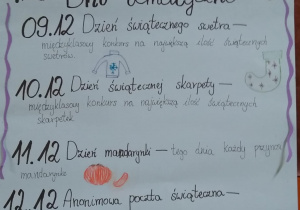 Dni tematyczne
09.12 Dzień świątecznego swetra –
międzyklasowy konkurs na największą ilość świątecznych
swetrów
10.12 Dzień świątecznej skarpety –
międzyklasowy konkurs na największą ilość świątecznych
skarpetek
11.12 Dzień mandarynki – tego dnia każdy przynosi
mandarynkę
12.12 Anonimowa poczta świąteczna –